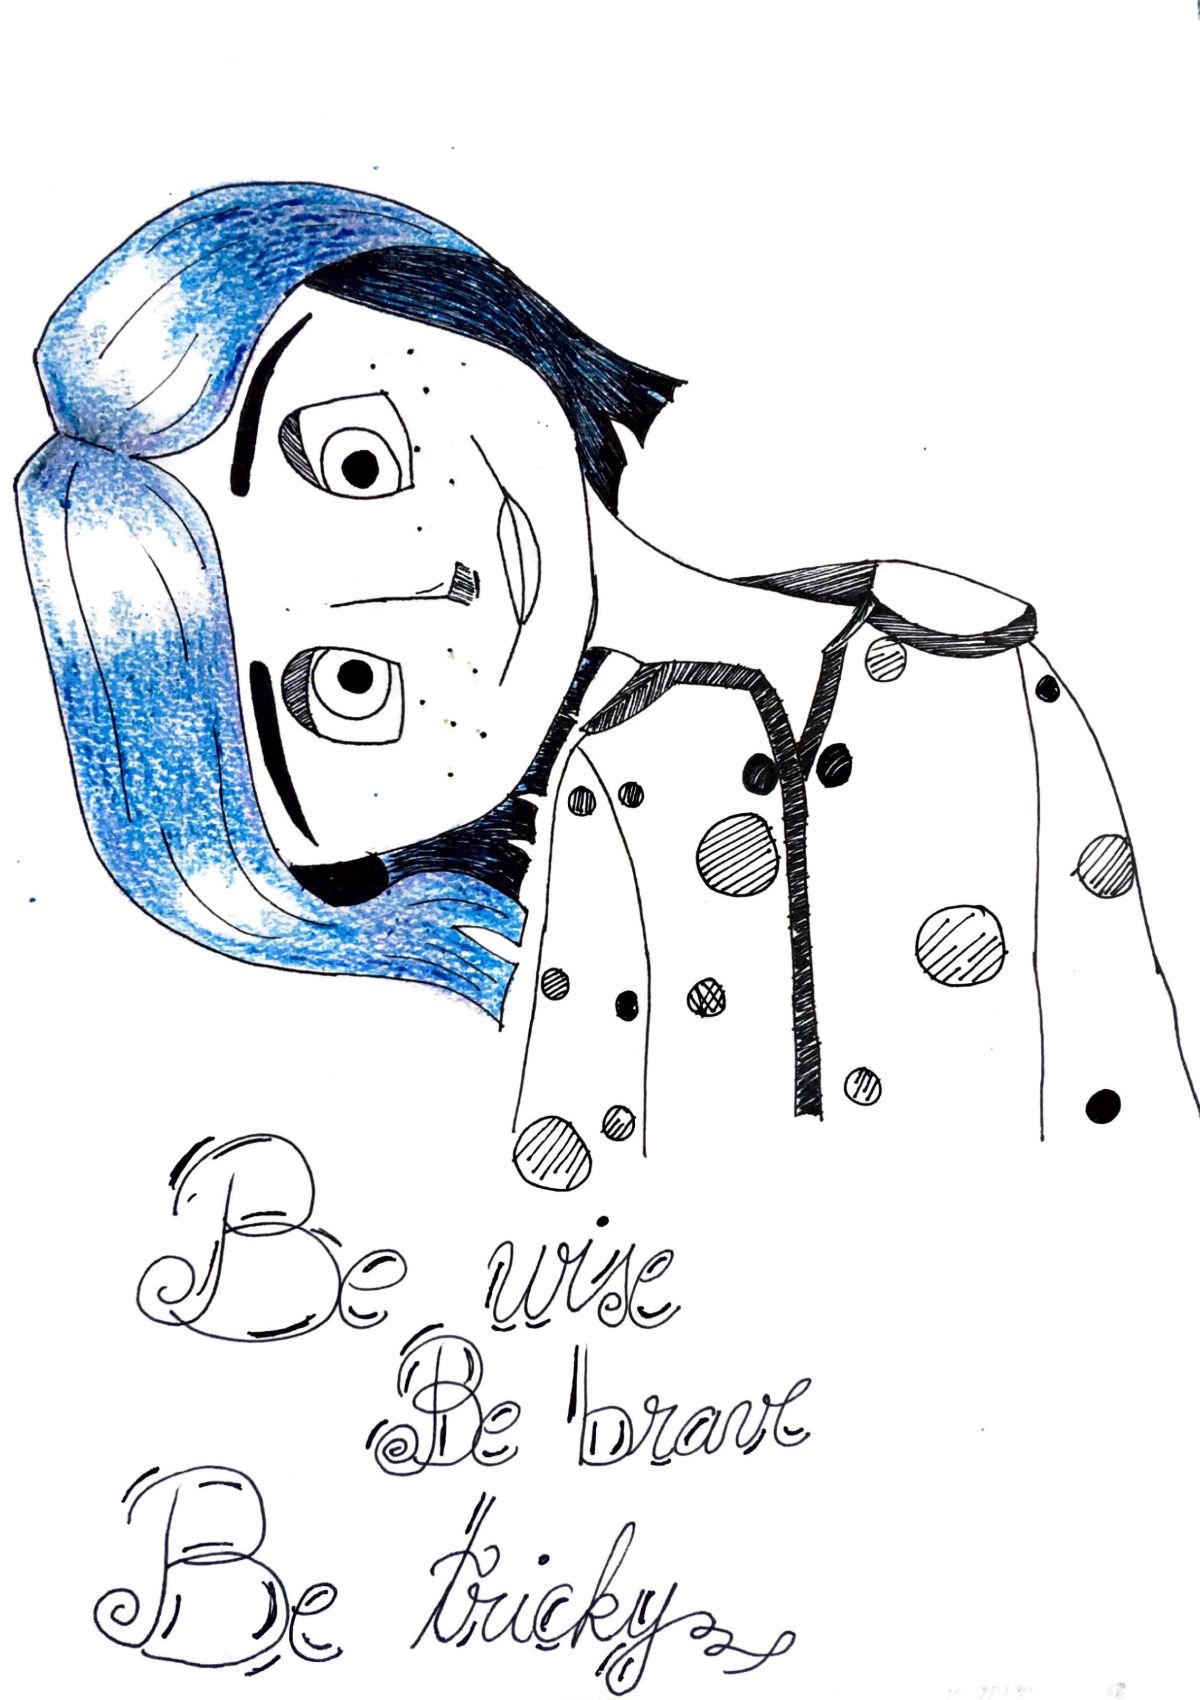 Be wise
Be brave
Be tricky